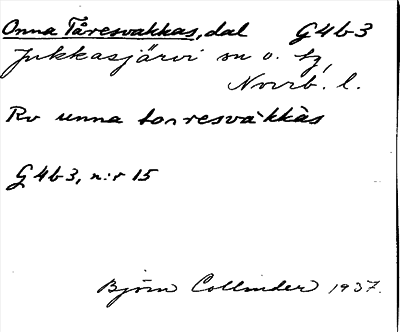 Onna Tåresvakkas, dal G4b3
Jukkasjärvi sn o. tg,
Norrb. l.
Rv unna torresva·kkàs
G4b3, n:r 15
Björn Collinder 1937.